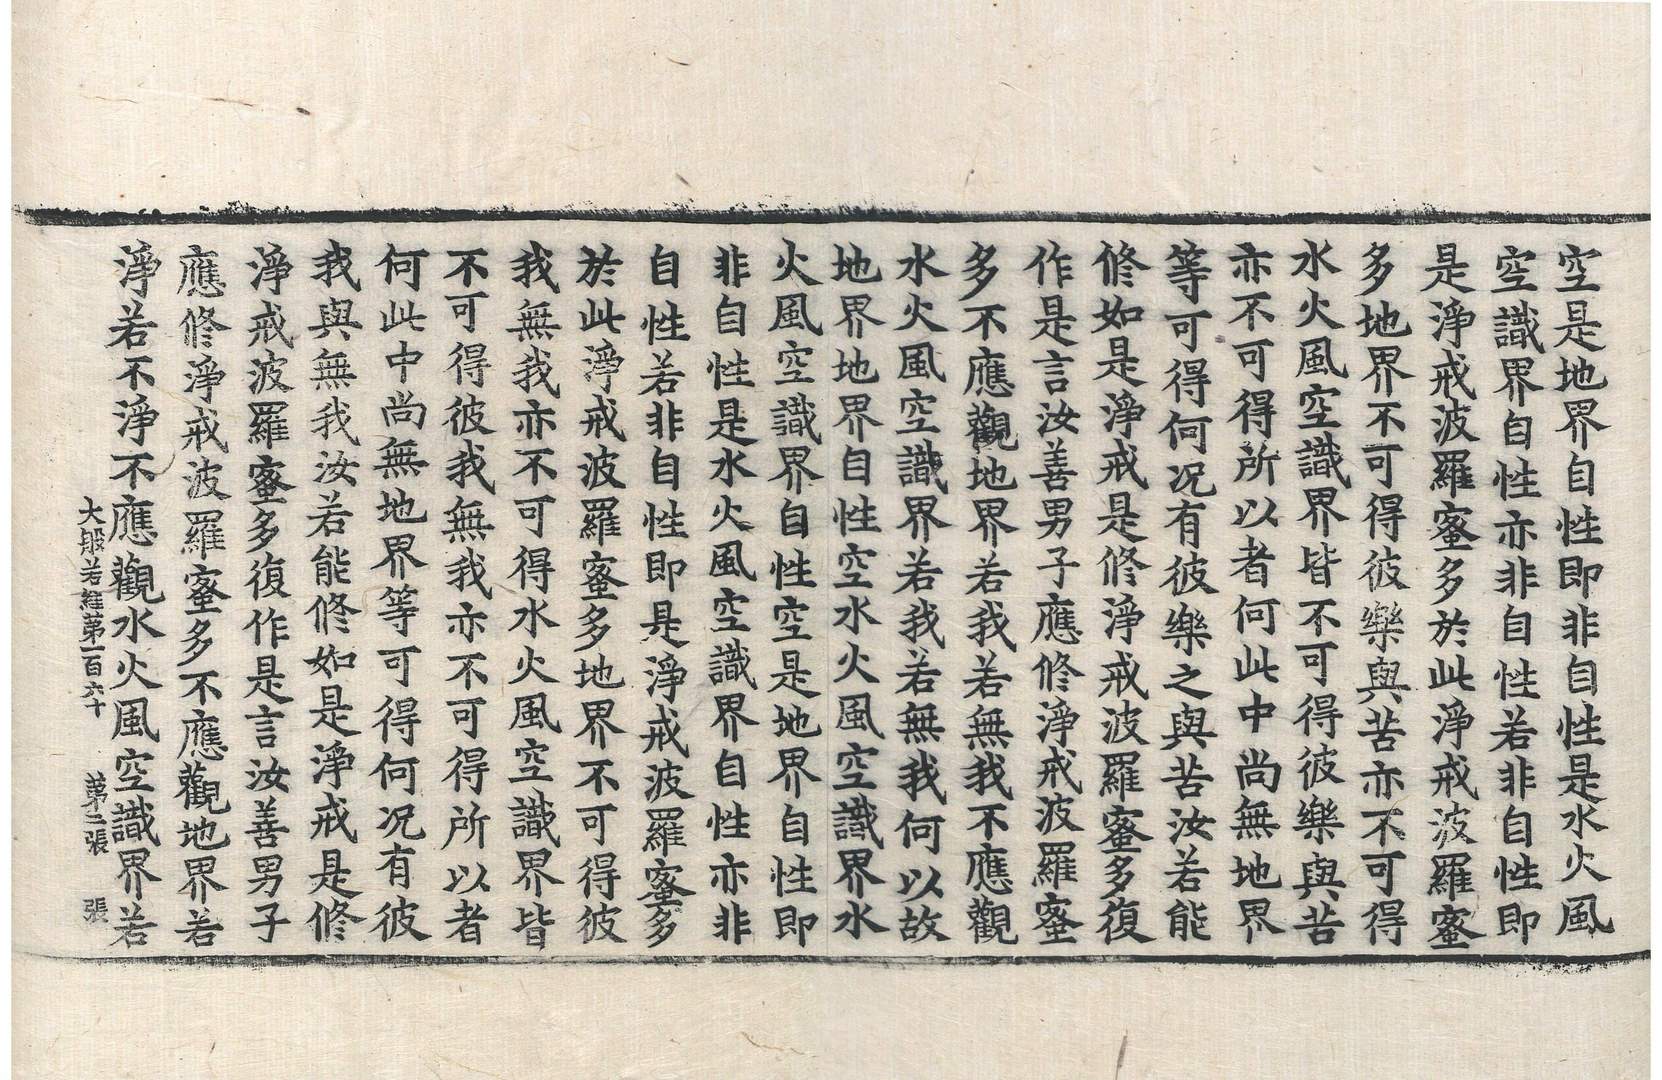 空是地界自性即非自性是水火風
空識界自性亦非自性若非自性即
是淨戒波羅蜜多於此淨戒波羅蜜
多地界不可得彼樂與苦亦不可得
水火風空識界皆不可得彼樂與苦
亦不可得所以者何此中尚無地界
等可得何况有彼樂之與苦汝若能
修如是淨戒是修淨戒波羅蜜多復
作是言汝善男子應修淨戒波羅蜜
多不應觀地界若我若無我不應觀
水火風空識界若我若無我何以故
地界地界自性空水火風空識界水
火風空識界自性空是地界自性即
非自性是水火風空識界自性亦非
自性若非自性即是淨戒波羅蜜多
於此淨戒波羅蜜多地界不可得彼
我無我亦不可得水火風空識界皆
不可得彼我無我亦不可得所以者
何此中尚無地界等可得何况有彼
我與無我汝若能修如是淨戒是修
淨戒波羅蜜多復作是言汝善男子
應修淨戒波羅蜜多不應觀地界若
淨若不淨不應觀水火風空識界若
大般若經第一百六十 第二張 張